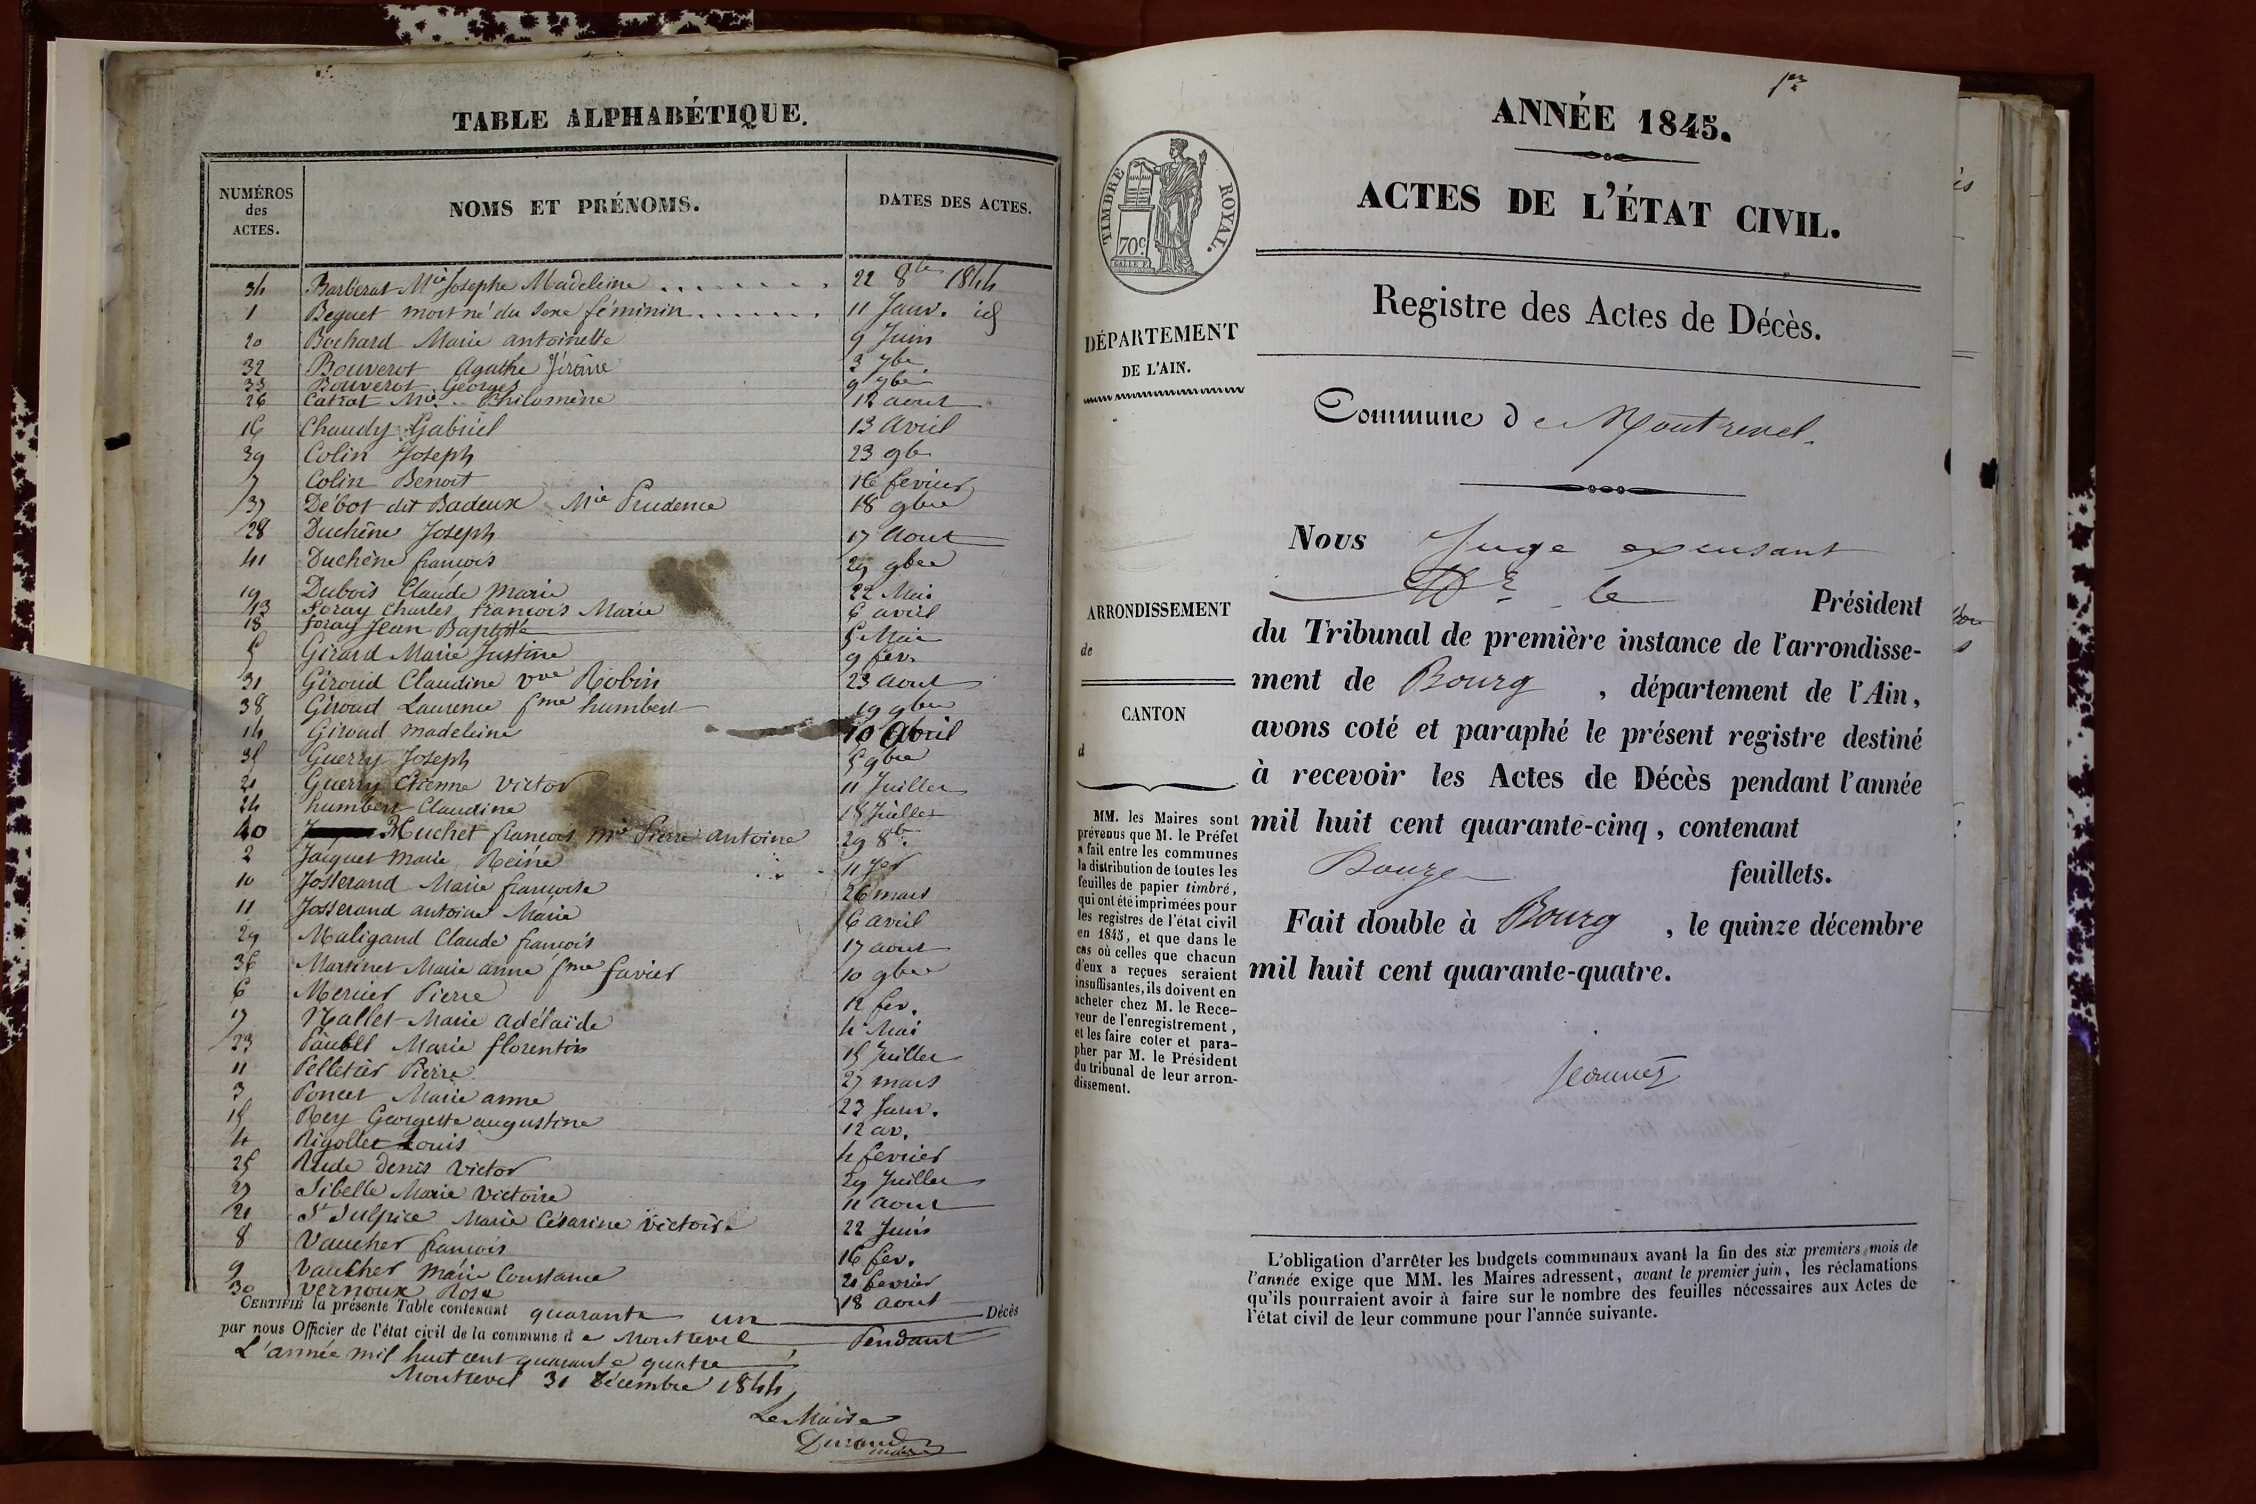 TABLE ALPHABÉTIQUE.
NUMÉROS des ACTES. NOMS ET PRÉNOMS. DATES DES ACTES.
34 Barberat Mie Josephe Madeleine 22 8bre 1844
1 Beguet mort né du Sexe féminin 11 Janv. id
20 Bochard Marie antoinette 9 Juin
32 Bouverot Agathe Jérôme 3 7bre
33 Bouverot Georges 9 7bre
26 Catrat Mie Philomène 12 aout
16 Chaudy Gabriel 13 Avril
39 Colin Joseph 23 9bre
7 Colin Benoit 16 fevrier
37 Débot dit Badeux Mie Prudence 18 9bre
28 Duchêne Joseph 17 Aout
41 Duchêne francois 29 9bre
19 Dubois Claude Marie 22 Mai
13 foray Charles francois Marie 6 avril
18 foray Jean Baptiste 5 Mai
5 Girard Marie Justine 9 fev.
31 Giroud Claudine vve Robin 23 aout
38 Giroud Laurence fme humbert 19 9bre
14 Giroud Madeleine 10 Avril
35 Guerry Joseph 5 9bre
21 Guerry Etienne Victor 11 Juillet
24 humbert Claudine 18 Juillet
40 Huchet francois mie Pierre antoine 29 8bre
2 Jacquet Marie Reine 11 Jer
10 Josserand Marie francoise 26 mars
11 Josserand antoine Marie 6 avril
29 Maligand Claude francois 17 aout
36 Martinet Marie anne fme favier 10 9bre
6 Mercier Pierre 12 fev.
17 Nallet Marie adélaïde 4 Mai
23 Paublt Marie florentin 15 Juillet
11 Pelletier Pierre 27 mars
3 Poncet Marie anne 23 Janv.
15 Rey Georgette augustine 12 av.
4 Rigollet Louis 4 fevrier
25 Rude denis victor 29 Juillet
27 Sibelle Marie Victoire 11 aout
21 St Sulpice Marie Césarine Victoire 22 Juin
8 Vaucher francois 16 fev.
9 Vaucher Marie Constance 21 fevrier
30 Vernoux Rose 18 aout
CERTIFIÉ la présente Table contenant quarante un Décès
par nous Officier de l'état civil de la commune de Montrevel Pendant
L'année mil huit cent quarante quatre
Montrevel 31 Décembre 1844
Le Maire
Durand
maire
ANNÉE 1845.
ACTES DE L'ÉTAT CIVIL.
TIMBRE ROYAL.
70c.
Registre des Actes de Décès.
DÉPARTEMENT
DE L'AIN.
Commune de Montrevel
ARRONDISSEMENT
de
CANTON
d
MM. les Maires sont
prévenus que M. le Préfet
a fait entre les communes
la distribution de toutes les
feuilles de papier timbré,
qui ont été imprimées pour
les registres de l'état civil
en 1845, et que dans le
cas où celles que chacun
d'eux a reçues seraient
insuffisantes, ils doivent en
acheter chez M. le Rece-
veur de l'enregistrement,
et les faire coter et para-
pher par M. le Président
du tribunal de leur arron-
dissement.
Nous Juge excusant
Mr le Président
du Tribunal de première instance de l'arrondisse-
ment de Bourg , département de l'Ain,
avons coté et paraphé le présent registre destiné
à recevoir les Actes de Décès pendant l'année
mil huit cent quarante-cinq, contenant
Douze feuillets.
Fait double à Bourg , le quinze décembre
mil huit cent quarante-quatre.
L'obligation d'arrêter les budgets communaux avant la fin des six premiers mois de
l'année exige que MM. les Maires adressent, avant le premier juin, les réclamations
qu'ils pourraient avoir à faire sur le nombre des feuilles nécessaires aux Actes de
l'état civil de leur commune pour l'année suivante.